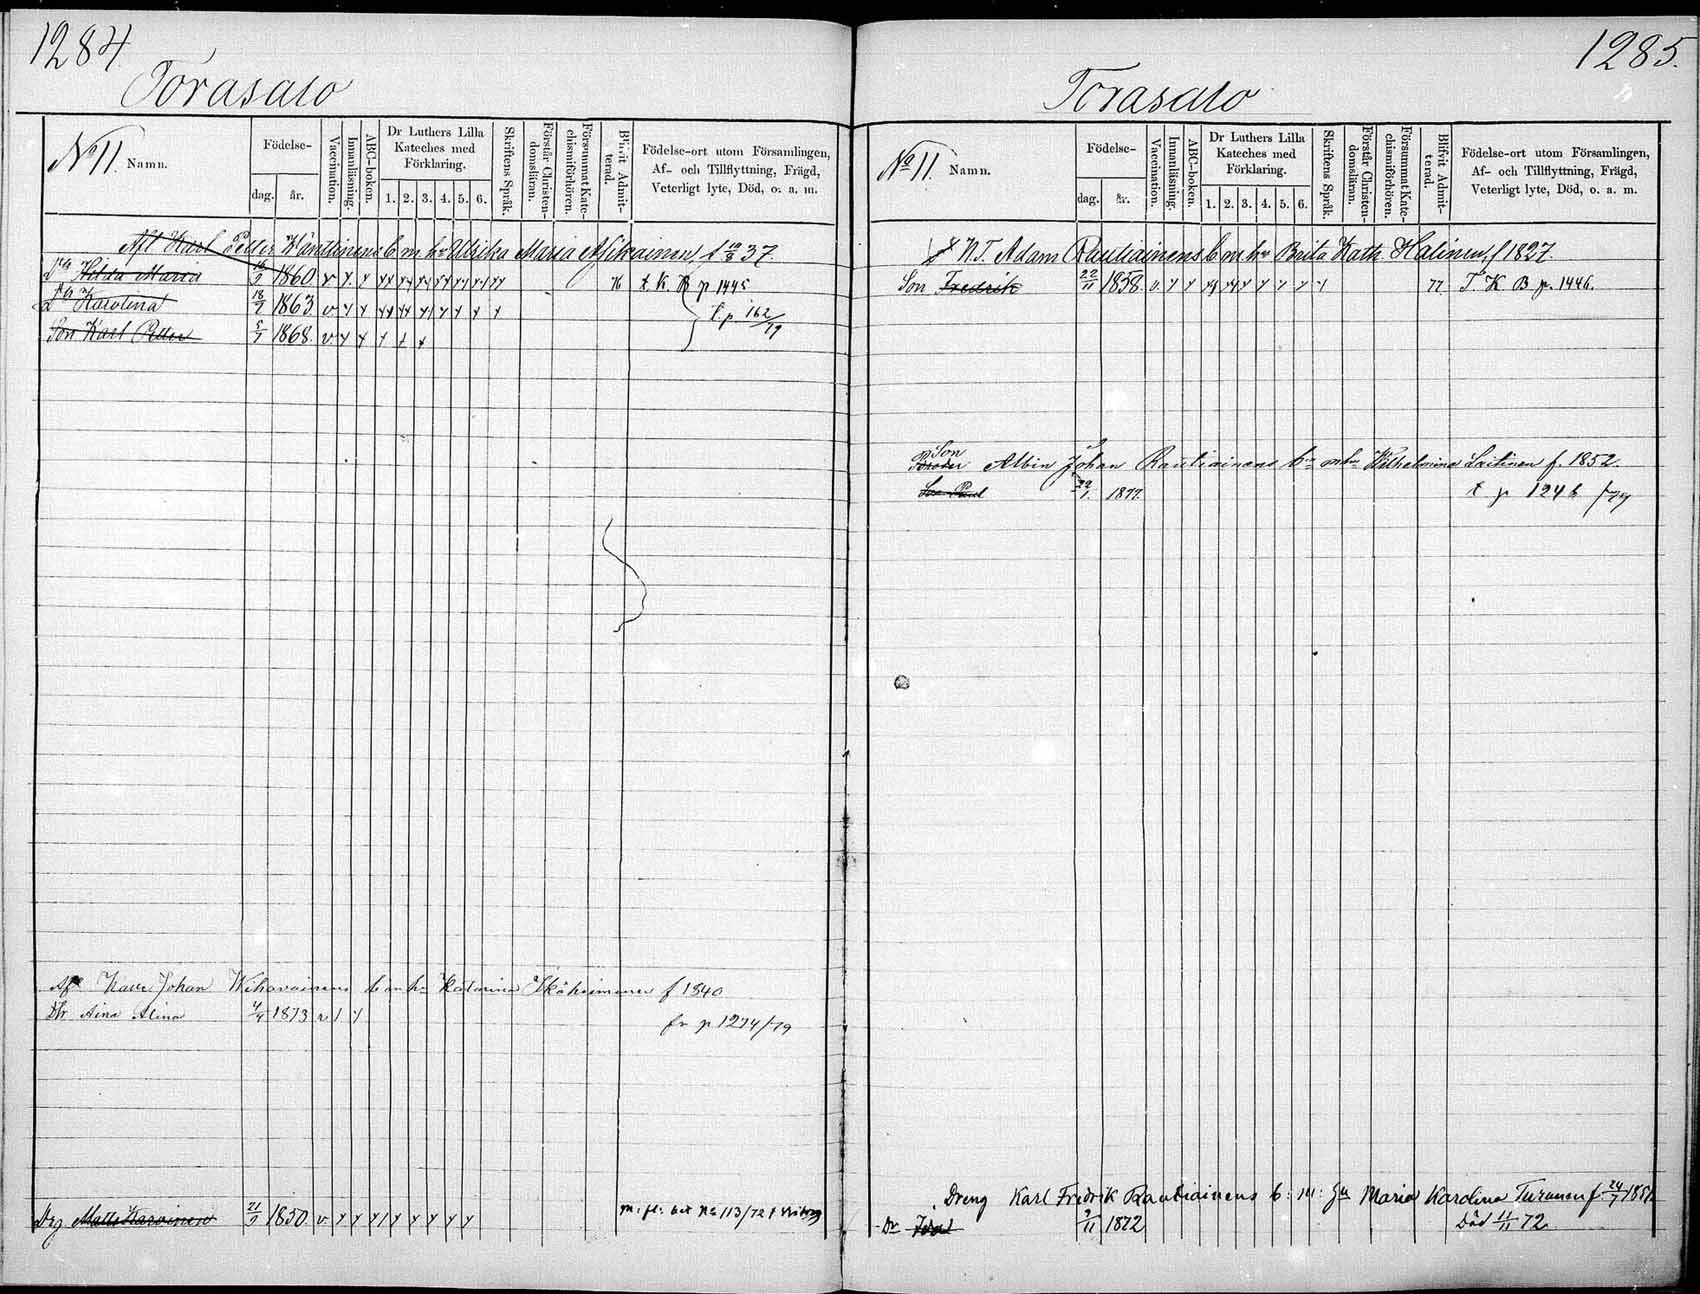 1284.
Torasalo
No 11. Namn.
Födelse-
dag. år.
Vaccination.
Innanläsning.
ABC-boken.
Dr Luthers Lilla
Kateches med
Förklaring.
1. 2. 3. 4. 5. 6.
Skriftens Språk.
Förstår Christen-
domsläran.
Försummat Kate-
chismiförhören.
Blifvit Admit-
terad.
Födelse-ort utom Församlingen,
Af- och Tillflyttning, Frägd,
Veterligt lyte, Död, o. a. m.
Afl Karl Petter b m hu Ulrika Maria f 37.
Hilda Maria 1860 v 76 t. K. B p 1445
Karolina 18/7 1863 v f. p. 162/79
Son Karl Petter 5/7 1868. v
Johan Wihavainens b m hu Katarina f 1840
Dtr Aina Alina 4/4 1873 fr p 1274/79
Drg Matts Karvinen 21/9 1850. v No 113/72 t Wiborg
1285.
Torasalo
No 11. Namn.
Födelse-
dag. år.
Vaccination.
Innanläsning.
ABC-boken.
Dr Luthers Lilla
Kateches med
Förklaring.
1. 2. 3. 4. 5. 6.
Skriftens Språk.
Förstår Christen-
domsläran.
Försummat Kate-
chismiförhören.
Blifvit Admit-
terad.
Födelse-ort utom Församlingen,
Af- och Tillflyttning, Frägd,
Veterligt lyte, Död, o. a. m.
N.T. Adam Rautiainens b m hu Brita Kath. Halinen f 1827.
Son Fredrik 22/11 1858. v. 77 T. K B p. 1446.
Son
Broder Albin Johan Rautiainens b m hu Wilhelmina Laitinen f. 1852.
Son Paul 22/1. 1877. t p 1246 /79
Dreng Karl Fredrik Rautiainens b: m: hu Maria Karolina Turunen f 24/7 185
Dr 9/11 1872 Död 11/11 72.